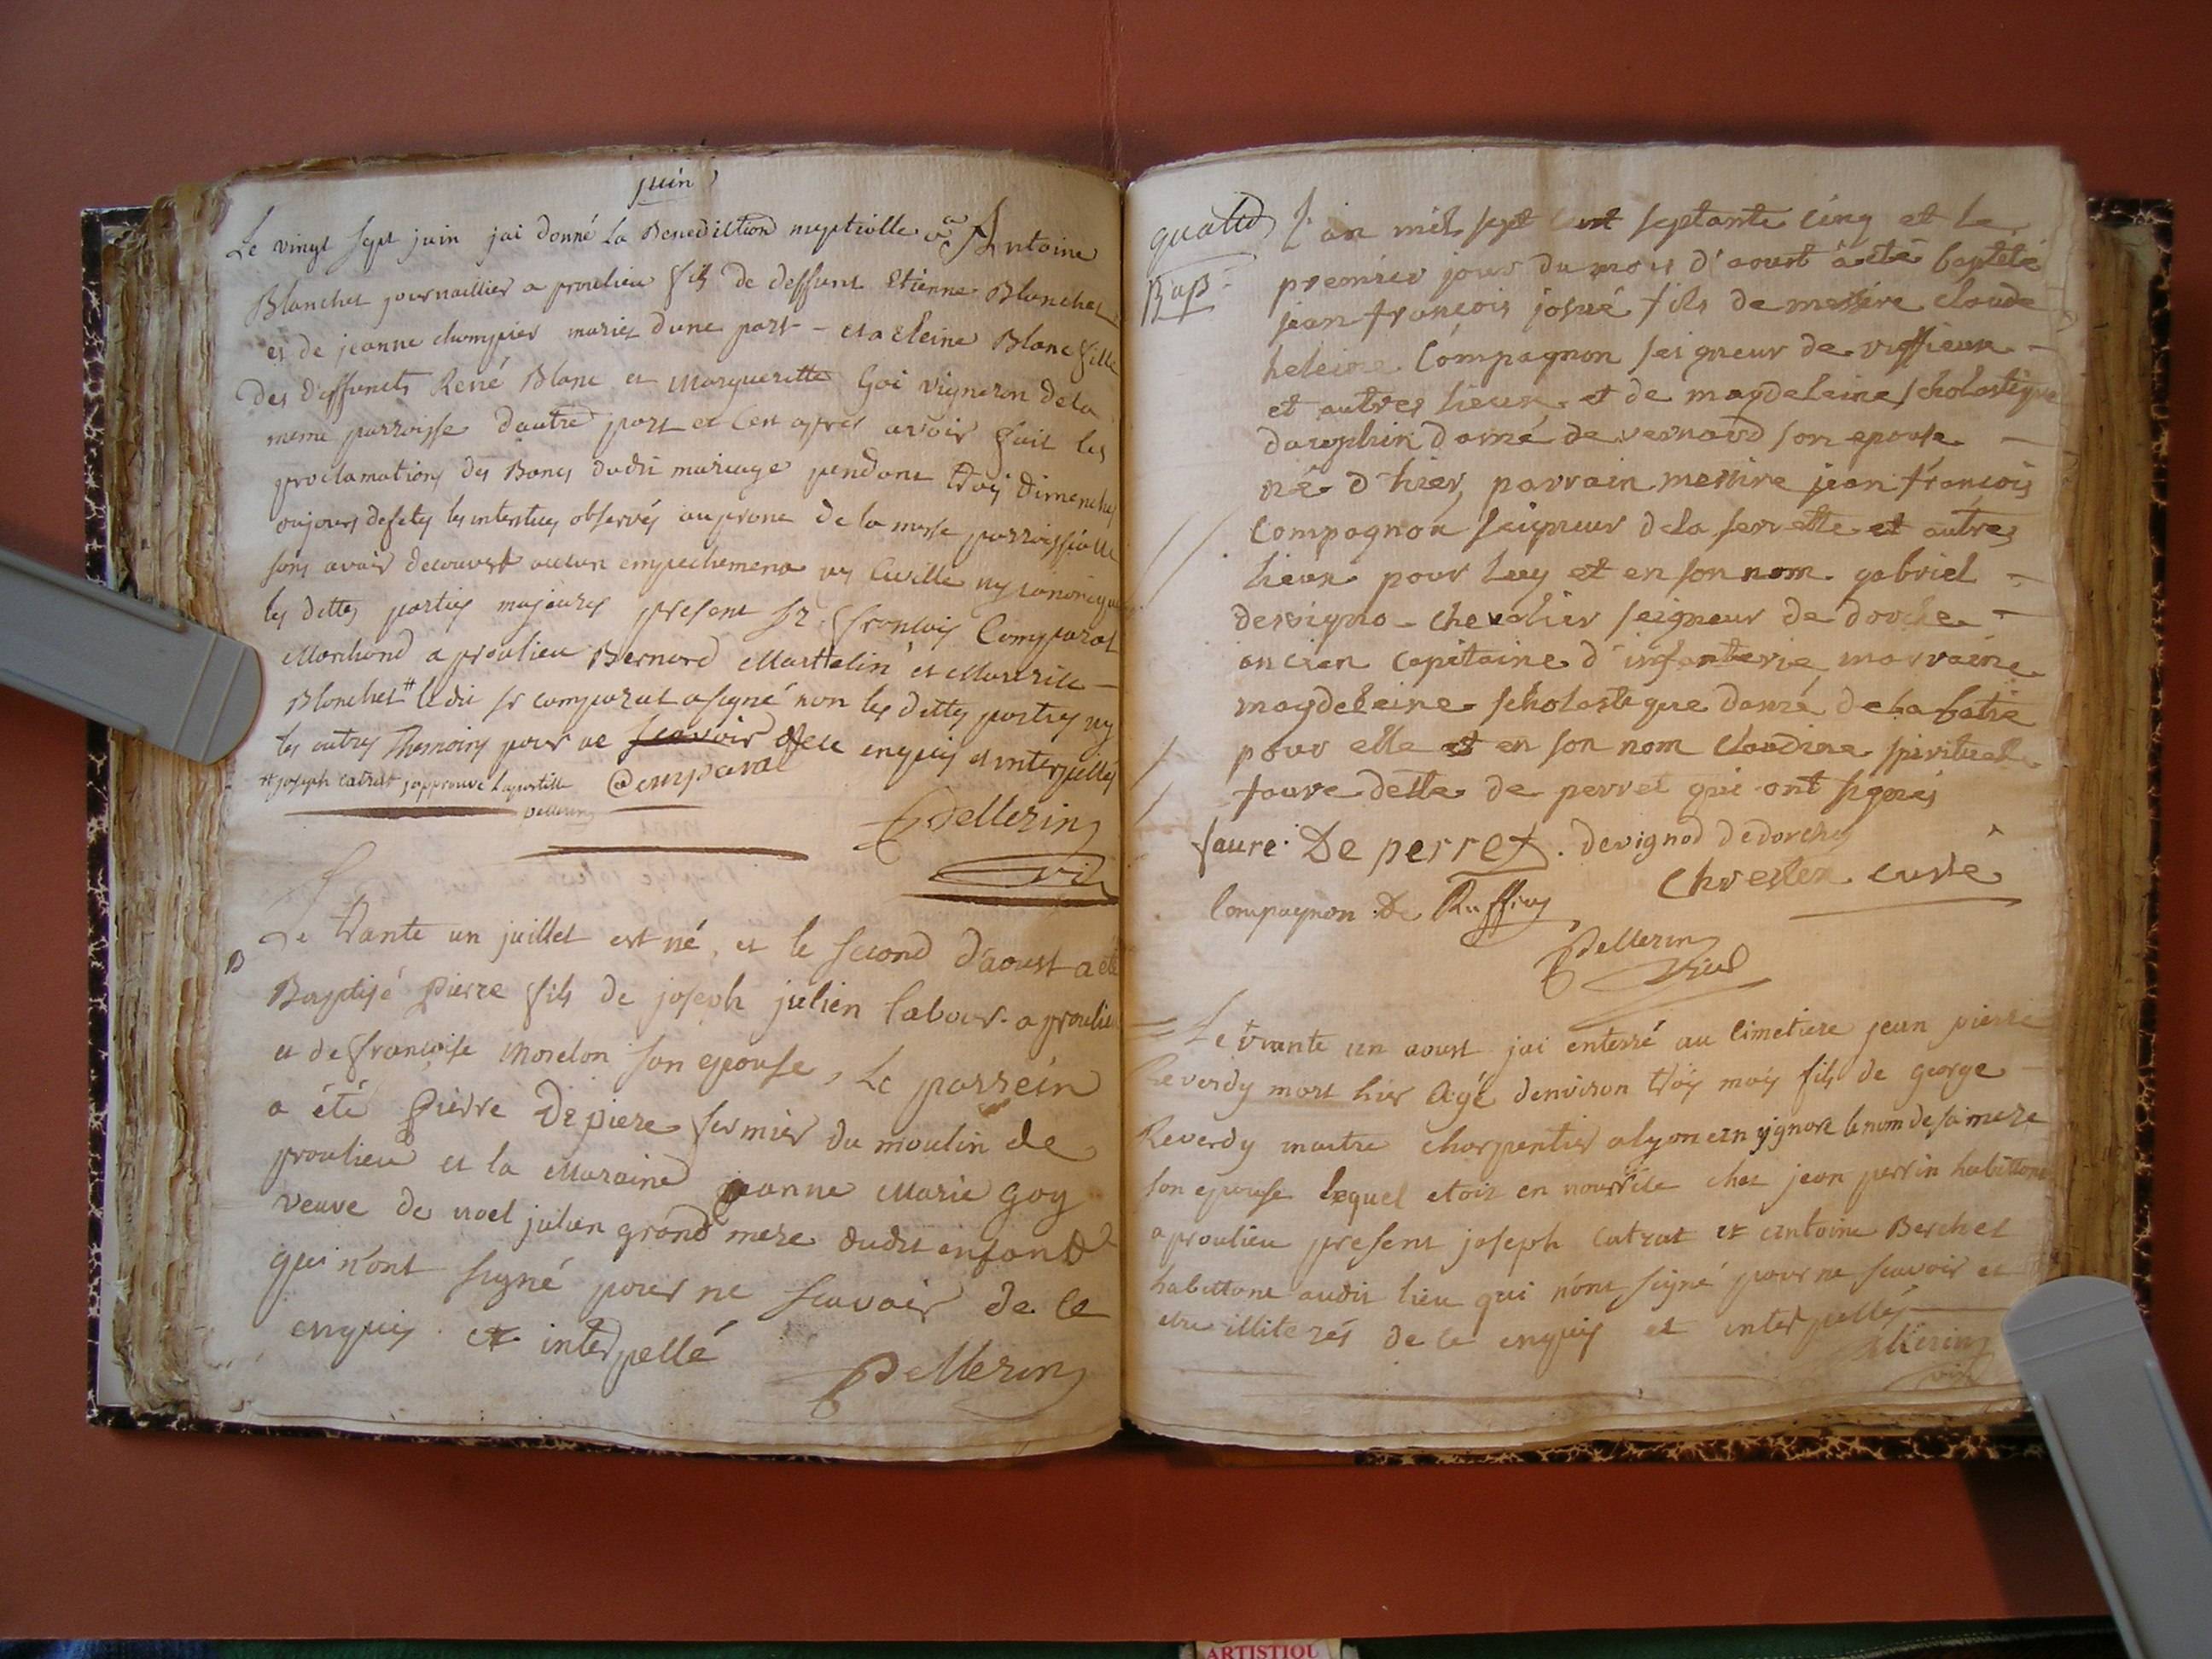 juin
Le vingt sept juin jai donné la Benediction nuptialle a Antoine
Blanchet journaillier a proulieu fils de deffunt Etienne Blanchet
et de jeanne champier mariez dune part - et a cleine Blanc fille
des deffuncts René Blanc et Marguerittte Goi vigneron de la
meme parroisse dautre part et cen apres avoir fait les
proclamations des Bancs dudit mariage pendant trois dimenches
oujours defetes les interstices observés au prone de la messe parroissialle
sans avoir decouvert aucun empechement ny Civille ny canonique
les dittes parties majeures present sr. francois Comparat
Marchand a proulieu Bernard Marttelin et
Blanchet # ledit sr comparat a signé non les dittes parties ny
les autres Themoins pour ne scavoir de ce enquis et interpellés
# joseph Catrat japprouve lapostille Comparat
pellerin
Pellerin
vic
Le Trante un juillet est né, et le second d'aoust a été
B
Baptisé Pierre fils de joseph julien labour. a proulieu
et de francoise Morelon son epouse, Le parrein
a été Pierre Depiere fermier du moulin de
proulieu et la Maraine jeanne Marie Goy
veuve de noel julien grand mere dudit enfant
qui n'ont signé pour ne scavoir de ce
enquis et interpellé
Pellerin
L'an mil sept cent septante cinq et le
premier jour du mois d'aoust à été baptisé
Bap
jean françois josué fils de messire claude
heleine Compagnon seigneur de ruffieux -
et autres lieux et de magdeleine scholastique
dauphin damé de vernas son epouse -
né d'hier, parrain messire jean françois
Compagnon seigneur de la servette et autres
lieux pour luy et en son nom gabriel -
devigno chevalier seigneur de dorche -
ancien capitaine d'infanterie marraine
magdeleine scholastique damé de la batie
pour elle et en son nom Claudine spirituel
faure dette de perret qui ont signés
faure De perret. devignod dedorches
Compagnon De Ruffieu
curé
Pellerin
vic
Le trante un aoust jai enterré au cimetiere jean pierre
Reverdy mort hier Agé denviron trois mois fils de george
Reverdy maitre charpentier a lyon ign ygnore le nom de sa mere
son epouse lequel etoit en nourrice chez jean perrin habittant
a proulieu present joseph Catrat et antoine Berchet
habittant audit lieu qui n'ont signé pour ne scavoir et
etre illiterés de ce enquis et interpellés
Pellerin
vic
ARTISTIQU